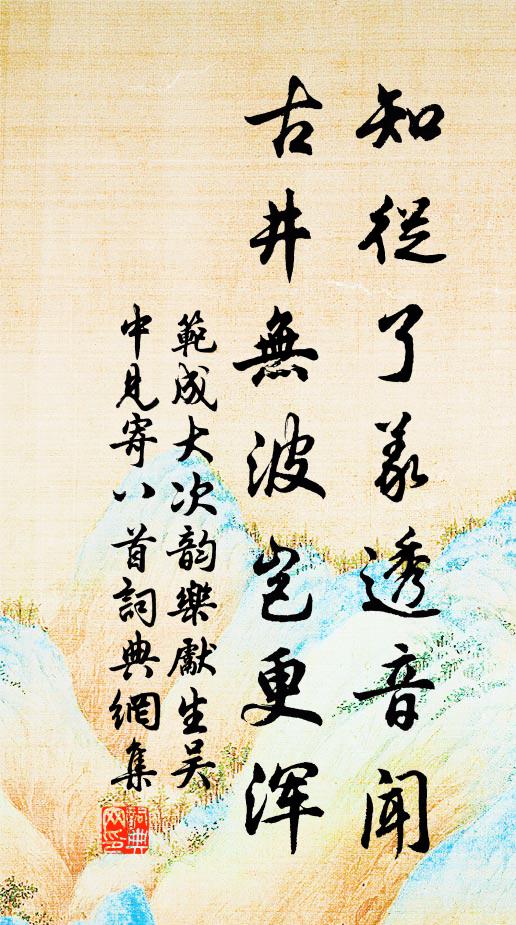 知從了義透音聞
古井無波豈更渾
範成大次韵樂獻生吴
中見寄八首詞典網集
詞典
网印